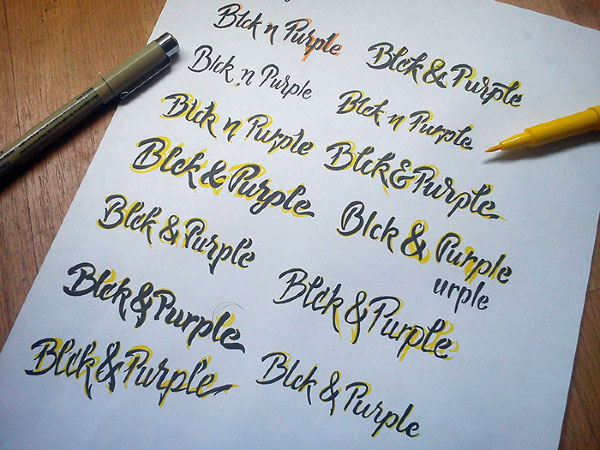 Blck n Purple
Blck n Purple
Blck n Purple
Blck & Purple
Blck & Purple
Blck & Purple
Blck & Purple
Blck & Purple
Blck n Purple
Blck & Purple
Blck & Purple
urple
Blck & Purple
Blck & Purple